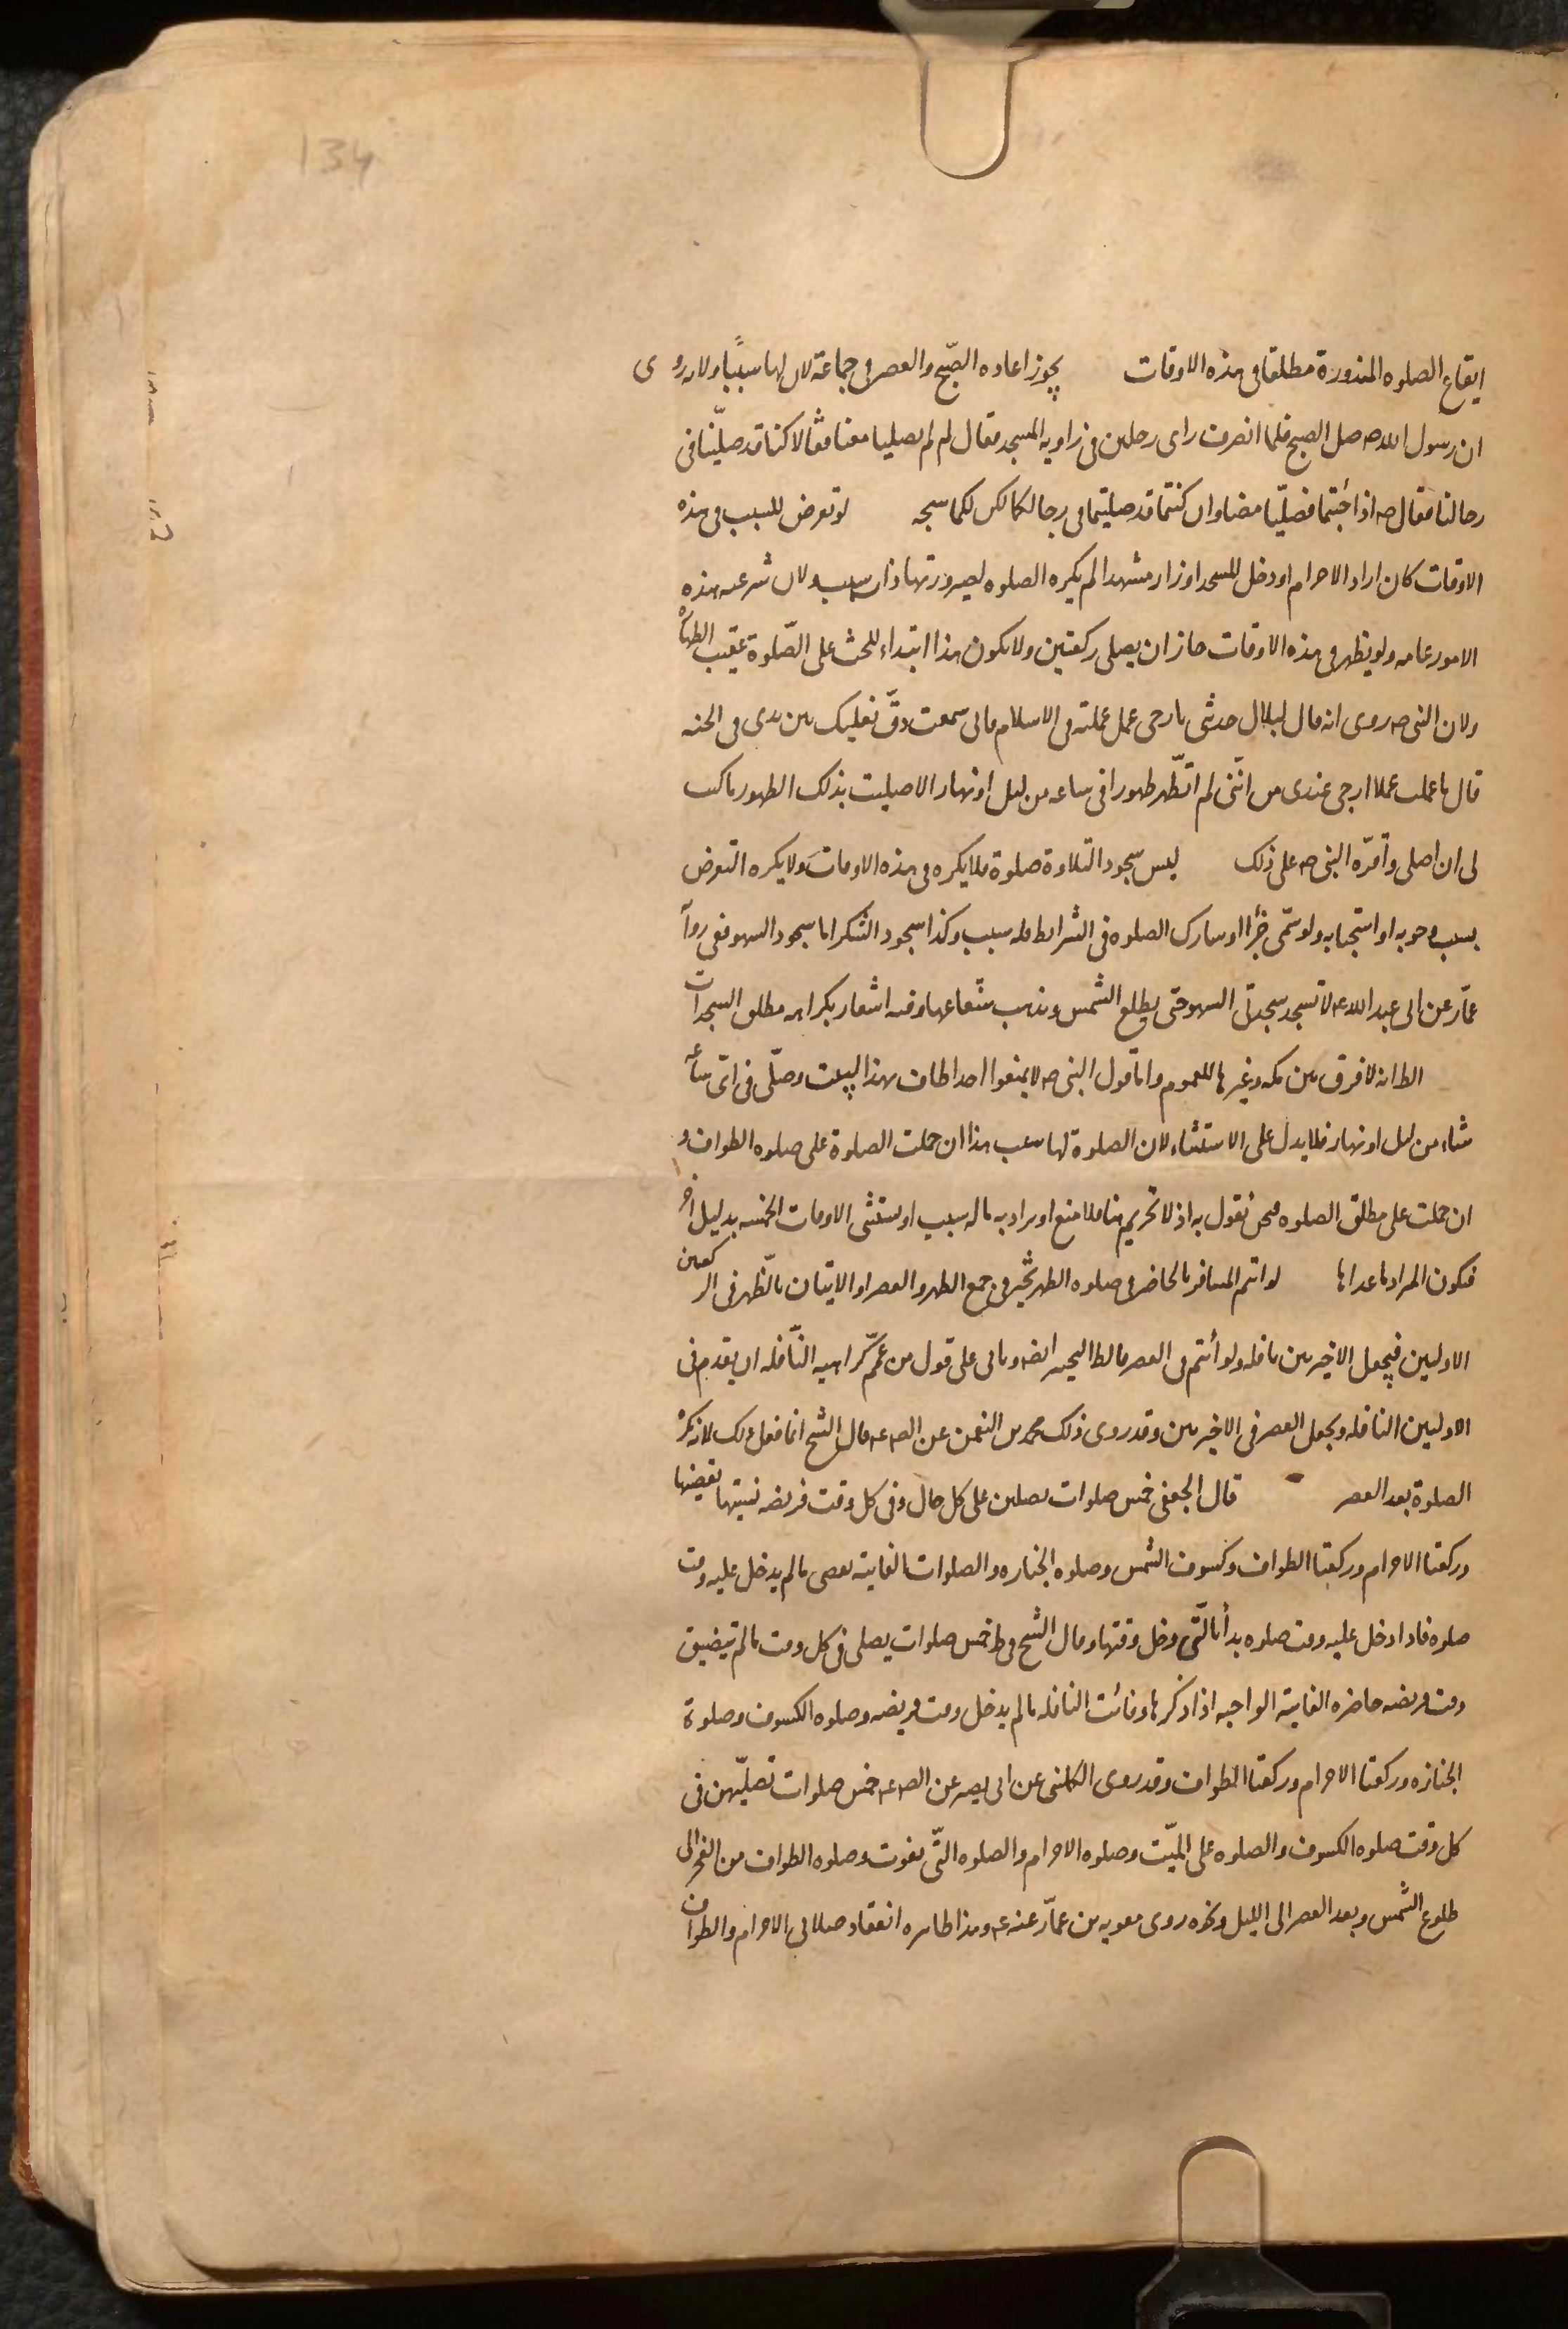 134
ايقاع الصلوه المنذورة مطلقا فى هذه الاوقات يجوز اعاده الصّبح والعصر فى جماعة لان لها سببًا ولانه روى
ان رسول الله ص صلى الصبح فلما انصرف راى رجلين فى زاويه المسجد فقال لم لم تصليا معنا فقالا كنا قد صلّينا فى
رحالنا فقال ص اذا جئتما فصلّيا معنا وان كنتما قد صليتما فى رحالكما تكن لكما سبحه لو تعرض للسبب فى هذه
الاوقات كان اراد الاحرام او دخل المسجد او زار مشهدا لم يكره الصلوه لصيرورتها ذات سبب ولان شرعيه هذه
الامور عامه ولو تطهر فى هذه الاوقات جاز ان يصلى ركعتين ولا يكون هذا ابتداء للحث على الصّلوة عقيب الطهاره
ولان النبى ص روى انه قال لبلال حدثنى بارجى عمل عملته فى الاسلام فانى سمعت دقّ نعليك بين يدى فى الجنه
قال ما عملت عملا ارجى عندى من انّنى لم اتطّهر طهورا فى ساعه من ليل او نهار الا صليت بذلك الطهور ما كتب
لى ان اصلى واقرّه النبى ص على ذلك ليس سجود التلاوة صلوة فلا يكره فى هذه الاوقات ولا يكره التعرض
بسبب وجوبه او استحبابه ولو سمّى جزًا او شارك الصلوه فى الشرايط فله سبب وكذا سجود الشكر اما سجود السهو ففى رواية
عمّار عن ابى عبد الله ع لا تسجد سجدتى السهو حتى يطلع الشمس ويذهب شعاعها وفيه اشعار بكراهه مطلق السجدات
الظ انه لا فرق بين مكه وغيرها للعموم واما قول النبى ص لا تمنعوا احدا طاف بهذا البيت وصلّى فى اىّ ساعه
شاء من ليل او نهار فلا يدل على الاستثناء لان الصلوة لها سبب هذا ان حملت الصلوة على صلوه الطواف و
ان حملت على مطلق الصلوه فنحن نقول به اذ لا تحريم هنا فلا منع او يراد به ما له سبب او يستثنى الاوقات الخمسه بدليل اخر
فيكون المراد ما عداها لو ائتم المسافر بالحاضر فى صلوه الظهر تخير فى جمع الظهر والعصر او الاتيان بالظّهر فى الركعتين
الاوليين فيجعل الاخيرتين نافله ولو أئتم فى العصر فالظ التخيير ايضا وياتى على قول من عمّ كراهيه النّافله ان يقدم فى
الاوليين النافله ويجعل العصر فى الاخيرتين وقد روى ذلك محمد بن النعمن عن الص ع قال الشيخ انما فعل ذلك لانه يكره
الصلوة بعد العصر قال الجعفى خمس صلوات يصلين على كل حال وفى كل وقت فريضه نسيتها تقضيها
وركعتا الاحرام وركعتا الطواف وكسوف الشمس وصلوه الجنازه والصلوات الفايته يقضى ما لم يدخل عليه وقت
صلوه فاذا دخل عليه وقت صلوه بدأ بالّتى دخل وقتها وقال الشيخ فى ط خمس صلوات يصلى فى كل وقت ما لم تيضيق
وقت فريضه حاضره الفايته الواجبه اذا ذكرها وفائت النافله ما لم يدخل وقت فريضه وصلوه الكسوف وصلوة
الجنازه وركعتا الاحرام وركعتا الطواف وقد روى الكلينى عن ابى بصير عن الص ع خمس صلوات تصلّيهن فى
كل وقت صلوه الكسوف والصلوه على الميّت وصلوه الاحرام والصلوه التّى تفوت وصلوه الطواف من الفجر الى
طلوع الشمس وبعد العصر الى الليل ونحوه روى معويه بن عمّار عنه ع وهذا ظاهره انعقاد صلاتى الاحرام والطواف